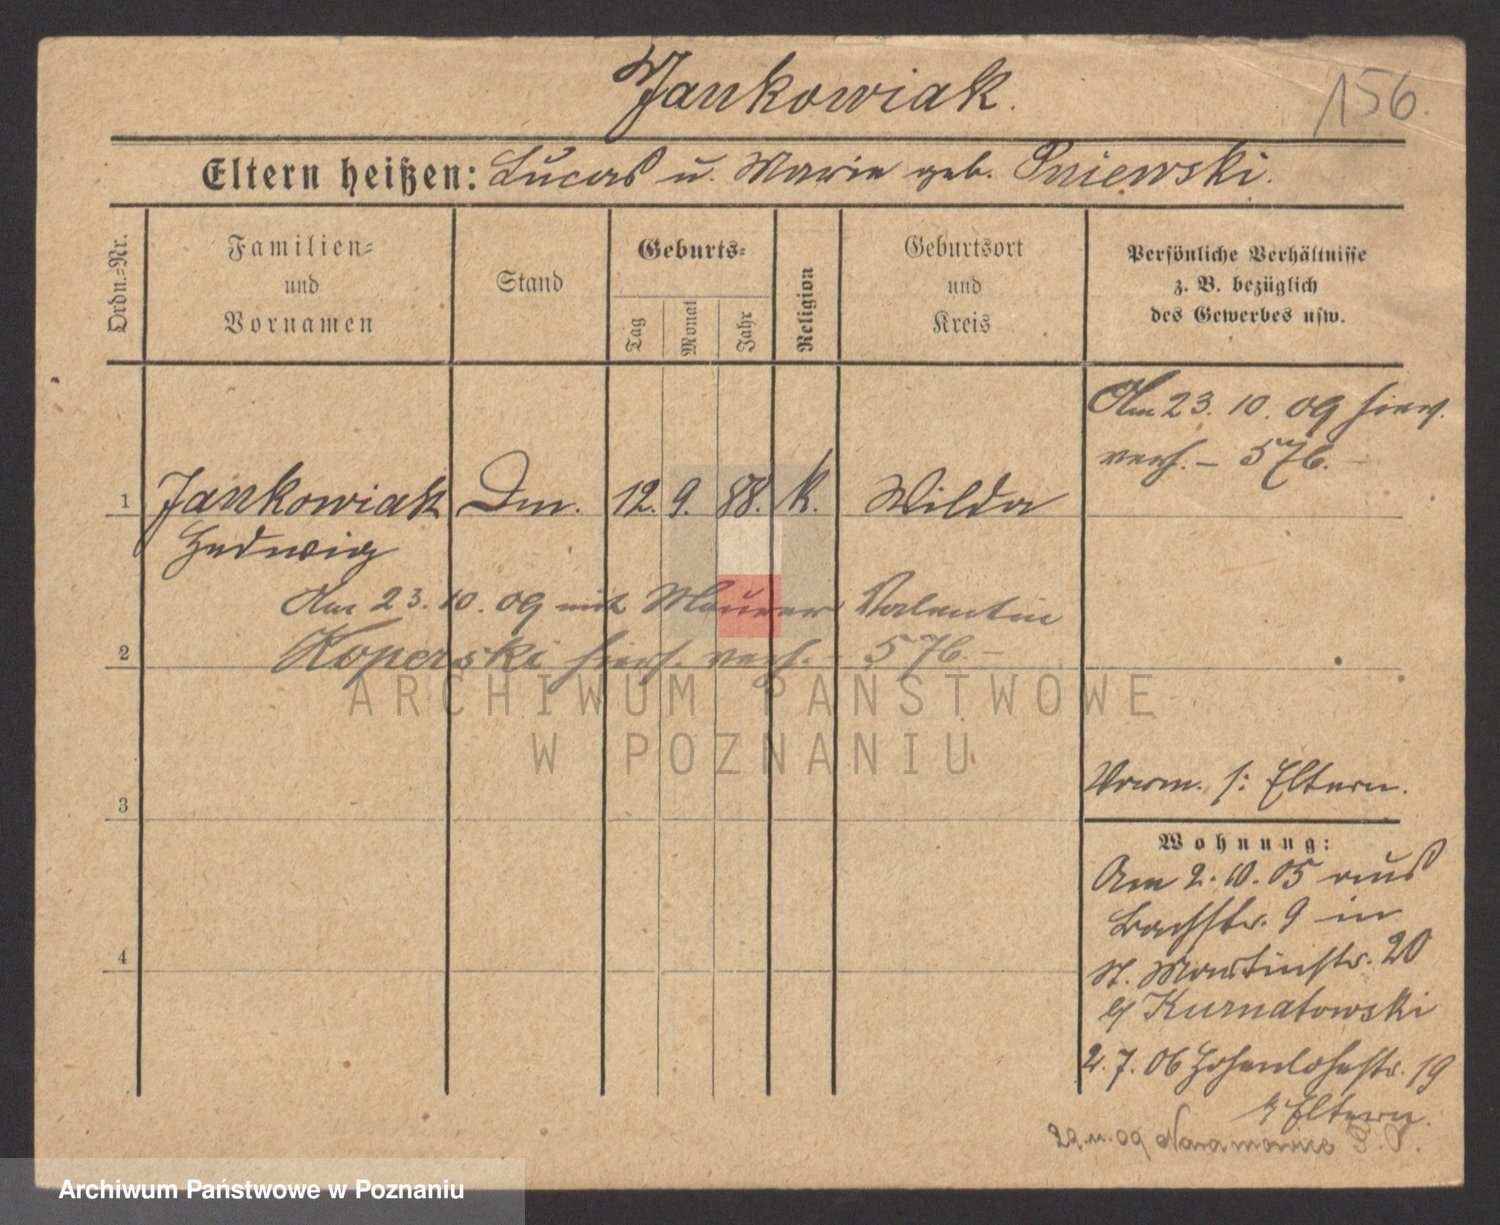 Jankowiak.
156.
Eltern heißen: Lucas u. Marie geb. Pniewski.
Ordn.=Nr.
Familien=
und
Vornamen
Stand
Geburts=
Tag
Monat
Jahr
Religion
Geburtsort
und
Kreis
Persönliche Verhältnisse
z. B. bezüglich
des Gewerbes usw.
Am 23. 10. 09 hierv.
verh. – 576. –
1 Jankowiak Dm. 12. 9. 88. k. Wilda
Hedwig
Am 23. 10. 09 mit Maurer Valentin
2 Koperski hiers. verh. 576. –
ARCHIWUM PAŃSTWOWE
W POZNANIU
3
4
Vorm. s: Eltern.
Wohnung:
Am 2. 10. 05 aus
Bachstr. 9 in
St. Martinstr. 20
b/ Kurnatowski
2. 7. 06 Hohenlohestr. 19
b/ Eltern.
29.11.09 Naramowice P.O.
Archiwum Państwowe w Poznaniu